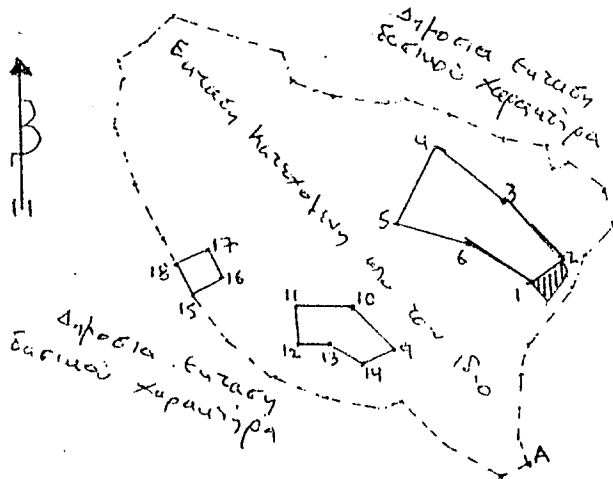 Δημοσια εκταση
δασικού χαρακτήρα
Εκταση κατεχομενη απο τον ίδιο
Β
4
3
5
6
2
1
17
18
16
15
11
10
12
13
9
14
Δημοσια εκταση
δασικού χαρακτήρα
Α